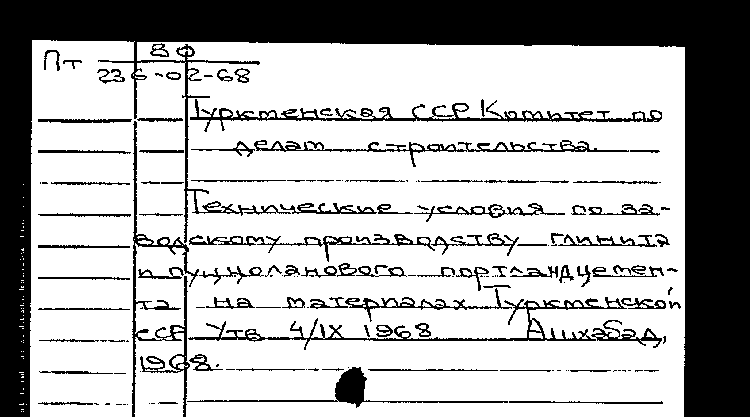 Пт 80
236-02-68
Туркменская ССР Комитет по
делам строительства.
Технические условия по за-
водскому производству глинита
и пуццоланового портландцемен-
та на материалах Туркменской
ССР Утв 4/IX 1968. Ашхабад,
1968.